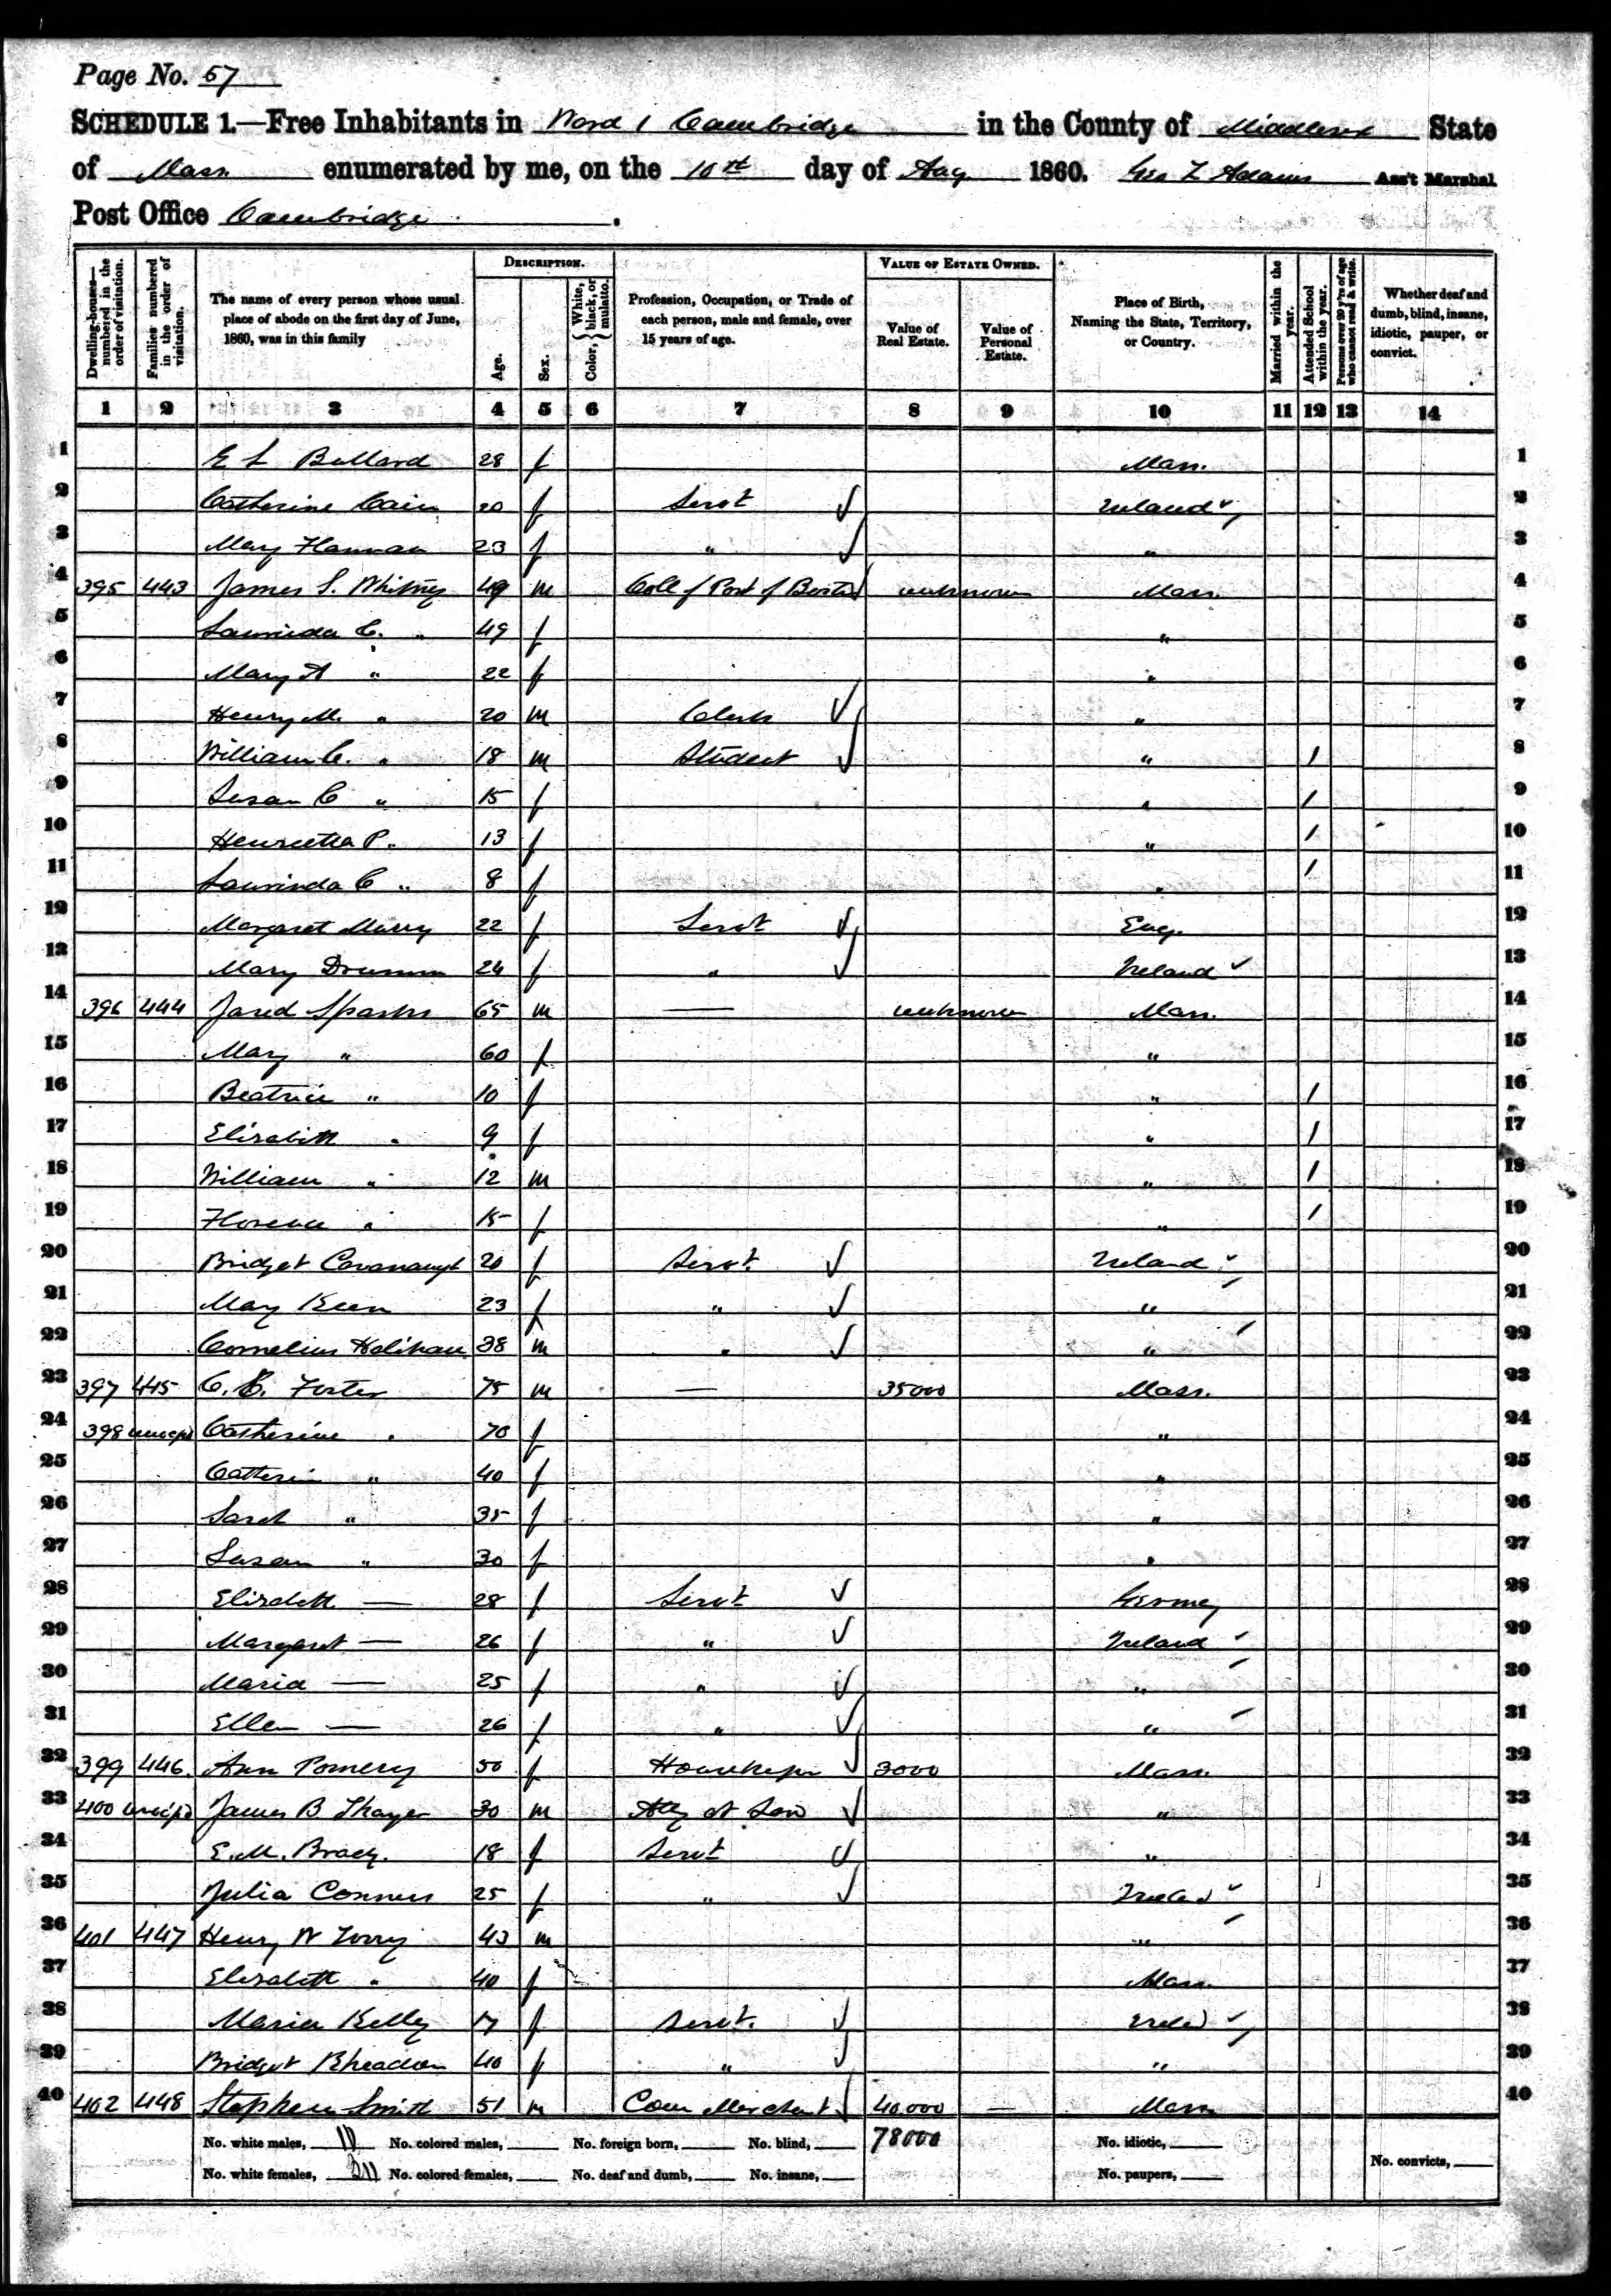 Page No. 57
SCHEDULE 1.—Free Inhabitants in Ward 1 Cambridge in the County of Middlesex State
of Mass. enumerated by me, on the 10th day of Aug 1860. Geo Z Adams Ass't Marshal
Post Office Cambridge.
Dwelling-houses—numbered in the order of visitation.
Families numbered in the order of visitation.
The name of every person whose usual place of abode on the first day of June, 1860, was in this family
DESCRIPTION.
Age.
Sex.
Color, { White, black, or mulatto.
Profession, Occupation, or Trade of each person, male and female, over 15 years of age.
VALUE OF ESTATE OWNED.
Value of Real Estate.
Value of Personal Estate.
Place of Birth, Naming the State, Territory, or Country.
Married within the year.
Attended School within the year.
Persons over 20 y'rs of age who cannot read & write.
Whether deaf and dumb, blind, insane, idiotic, pauper, or convict.
1 2 3 4 5 6 7 8 9 10 11 12 13 14
1 E L Bullard 28 f Mass. 1
2 Catherine Cain 20 f Servt Ireland 2
3 Mary Hannan 23 f " " 3
4 395 443 James S. Whitney 49 m Coll of Port of Boston unknown Mass. 4
5 Laurinda C. " 49 f " 5
6 Mary A " 22 f " 6
7 Henry M. " 20 m Clerk " 7
8 William C. " 18 m Student " / 8
9 Susan C " 15 f " / 9
10 Henrietta P. 13 f " / 10
11 Laurinda C " 8 f " / 11
12 Margaret Murry 22 f Servt Eng. 12
13 Mary Drumm 24 f " Ireland 13
14 396 444 Jared Sparks 65 m — unknown Mass. 14
15 Mary " 60 f " 15
16 Beatrice " 10 f " / 16
17 Elizabeth " 9 f " / 17
18 William " 12 m " / 18
19 Florence " 15 f " / 19
20 Bridget Cavanaugh 20 f Servt. Ireland 20
21 Mary Keen 23 f " " 21
22 Cornelius Holihan 38 m " " 22
23 397 445 C. C. Foster 75 m — 35000 Mass. 23
24 398 unocpd Catherine " 70 f " 24
25 Catherin " 40 f " 25
26 Sarah " 35 f " 26
27 Susan " 30 f " 27
28 Elizabeth — 28 f Servt Germey 28
29 Margaret — 26 f " Ireland 29
30 Maria — 25 f " " 30
31 Ellen — 26 f " " 31
32 399 446. Ann Pomery 50 f Housekeper 3000 Mass. 32
33 400 unocpd James B Thayer 30 m Atty at Law " 33
34 E. M. Brady. 18 f Servt " 34
35 Julia Conners 25 f " Ireland 35
36 401 447 Henry W Torrey 43 m " 36
37 Elizabeth " 40 f Mass. 37
38 Maria Kelly 17 f Servt. Ireld 38
39 Bridget 40 f " " 39
40 402 448 Stephen Smith 51 m Com Merchant 40,000 — Mass 40
No. white males, No. colored males, No. foreign born, No. blind, 78000 No. idiotic,
No. white females, No. colored females, No. deaf and dumb, No. insane, No. paupers, No. convicts,